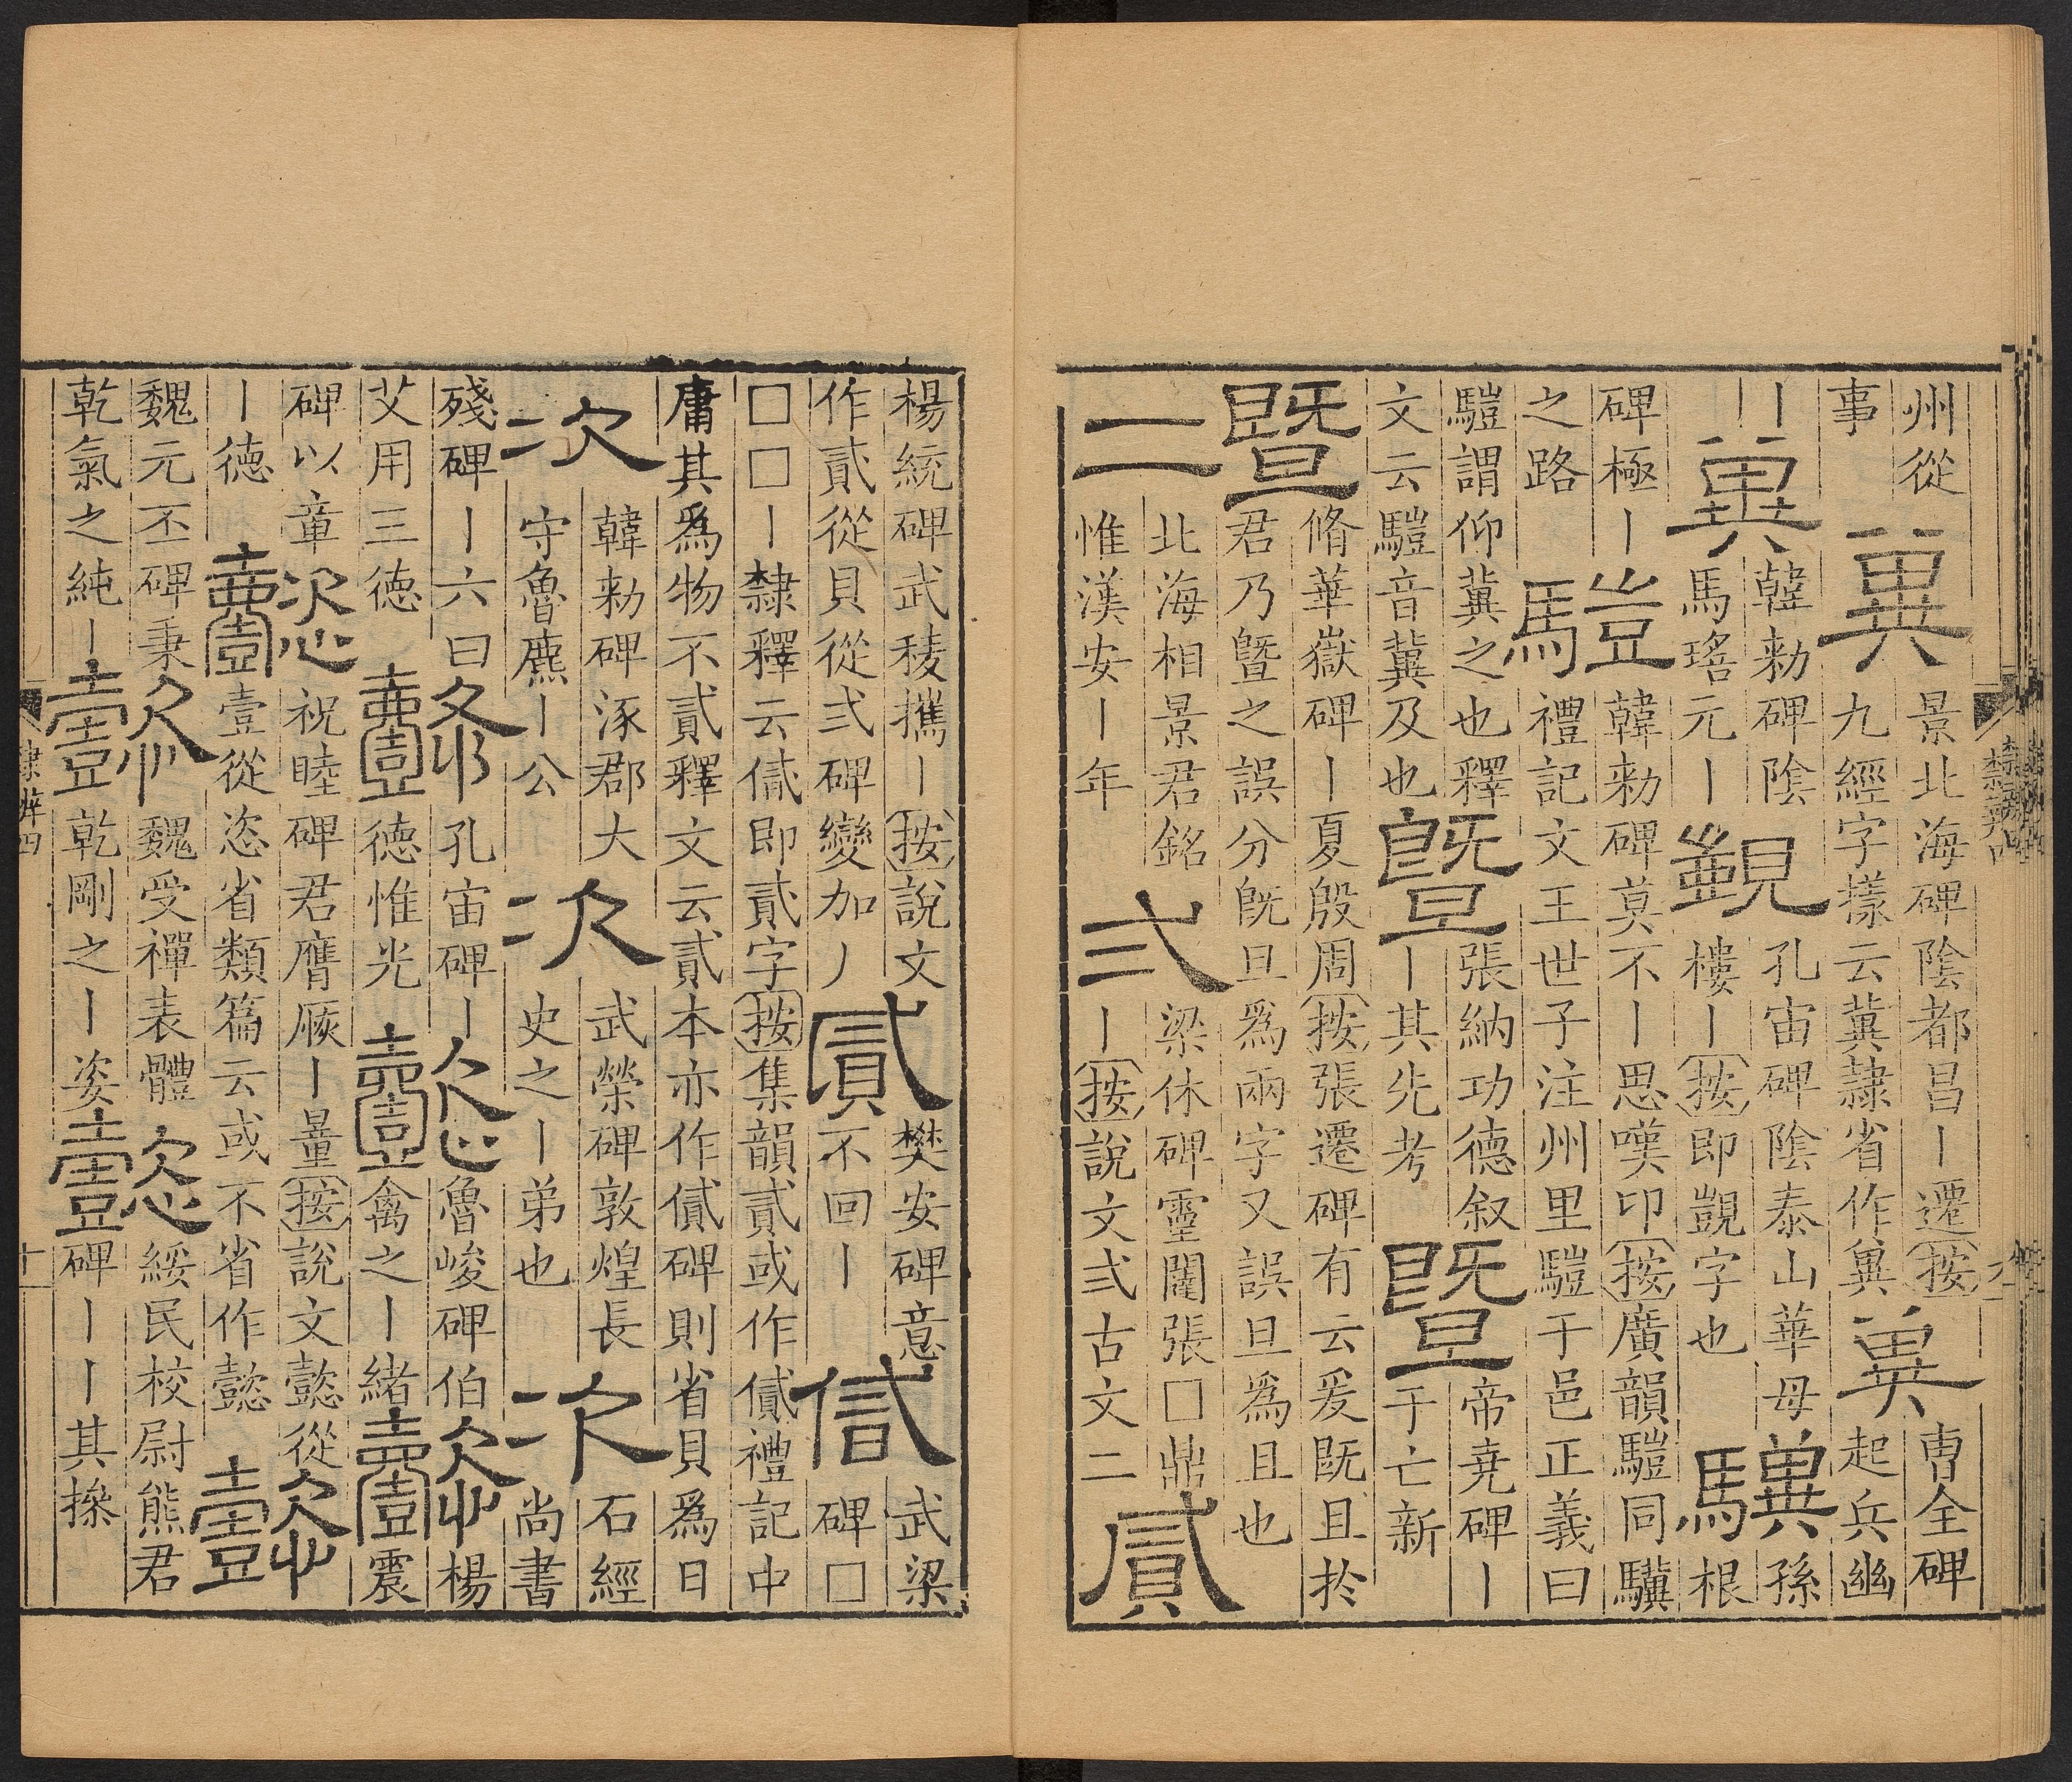 州從事
兾
景北海碑陰都昌丨遷按九經字㨾云冀隸省作兾
兾
曹全碑起兵幽
丨
兾
韓勑碑陰馬瑤元丨
覬
孔宙碑陰泰山華母樓丨按即覬字也
驥
孫根
碑極丨之路
騹
韓勑碑莫不丨思嘆印按廣韻騹同驥禮記文王世子注州里騹于邑正義曰
騹謂仰冀之也釋文云騹音冀及也
曁
張納功德叙丨其先考
曁
帝堯碑丨于亡新
曁
脩華嶽碑丨夏殷周按張遷碑有云爰既且於君乃曁之誤分旣旦為兩字又誤旦為且也
二
北海相景君銘惟漢安丨年
弍
梁休碑靈闡張□鼎丨按說文弍古文二
貳
隸辨四
楊統碑武稜攜丨按說文作貳從貝從弍碑變加丿
貳
樊安碑意不回丨
武梁碑□
□□丨隸釋云即貳字按集韻貳或作㒃禮記中庸其爲物不貳釋文云貳本亦作㒃碑則省貝爲日
次
韓勑碑涿郡大守魯麃丨公
次
武榮碑敦煌長史之丨弟也
次
石經尚書
殘碑丨六曰艾用三德
懿
孔宙碑丨德惟光
懿
魯峻碑伯禽之丨緒
懿
楊震
碑以章丨德
懿
祝睦碑君膺厥丨量按說文懿從壹從恣省類篇云或不省作懿
懿
魏元丕碑秉乾氣之純丨
懿
魏受禪表體乾剛之丨姿
懿
綏民校尉熊君碑丨丨其操
隸辨四
十